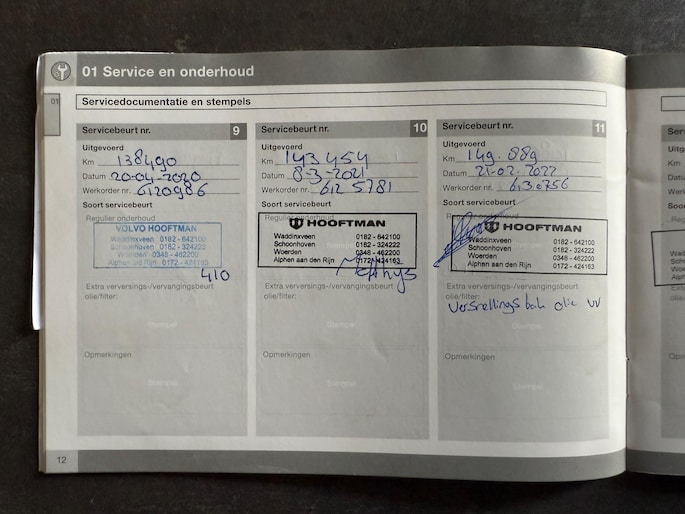 01 Service en onderhoud
01
Servicedocumentatie en stempels
Servicebeurt nr. 9
Uitgevoerd
Km 138490
Datum 20-04-2020
Werkorder nr. 6120986
Soort servicebeurt
Regulier onderhoud
VOLVO HOOFTMAN
Waddinxveen 0182 - 642100
Schoonhoven 0182 - 324222
Woerden 0348 - 462200
Alphen a/d Rijn 0172 - 424163
410
Extra verversings-/vervangingsbeurt
olie/filter:
Stempel
Opmerkingen
Stempel
12
Servicebeurt nr. 10
Uitgevoerd
Km 143454
Datum 8-3-2021
Werkorder nr. 612 5781
Soort servicebeurt
Regulier onderhoud
HOOFTMAN
Waddinxveen 0182 - 642100
Schoonhoven 0182 - 324222
Woerden 0348 - 462200
Alphen aan den Rijn 0172 - 424163
Extra verversings-/vervangingsbeurt
olie/filter:
Stempel
Opmerkingen
Stempel
Servicebeurt nr. 11
Uitgevoerd
Km 149.889
Datum 21-02-2022
Werkorder nr. 6130756
Soort servicebeurt
Regulier onderhoud
HOOFTMAN
Waddinxveen 0182 - 642100
Schoonhoven 0182 - 324222
Woerden 0348 - 462200
Alphen aan den Rijn 0172 - 424163
Extra verversings-/vervangingsbeurt
olie/filter:
Versnellingsbak olie VV
Stempel
Opmerkingen
Stempel